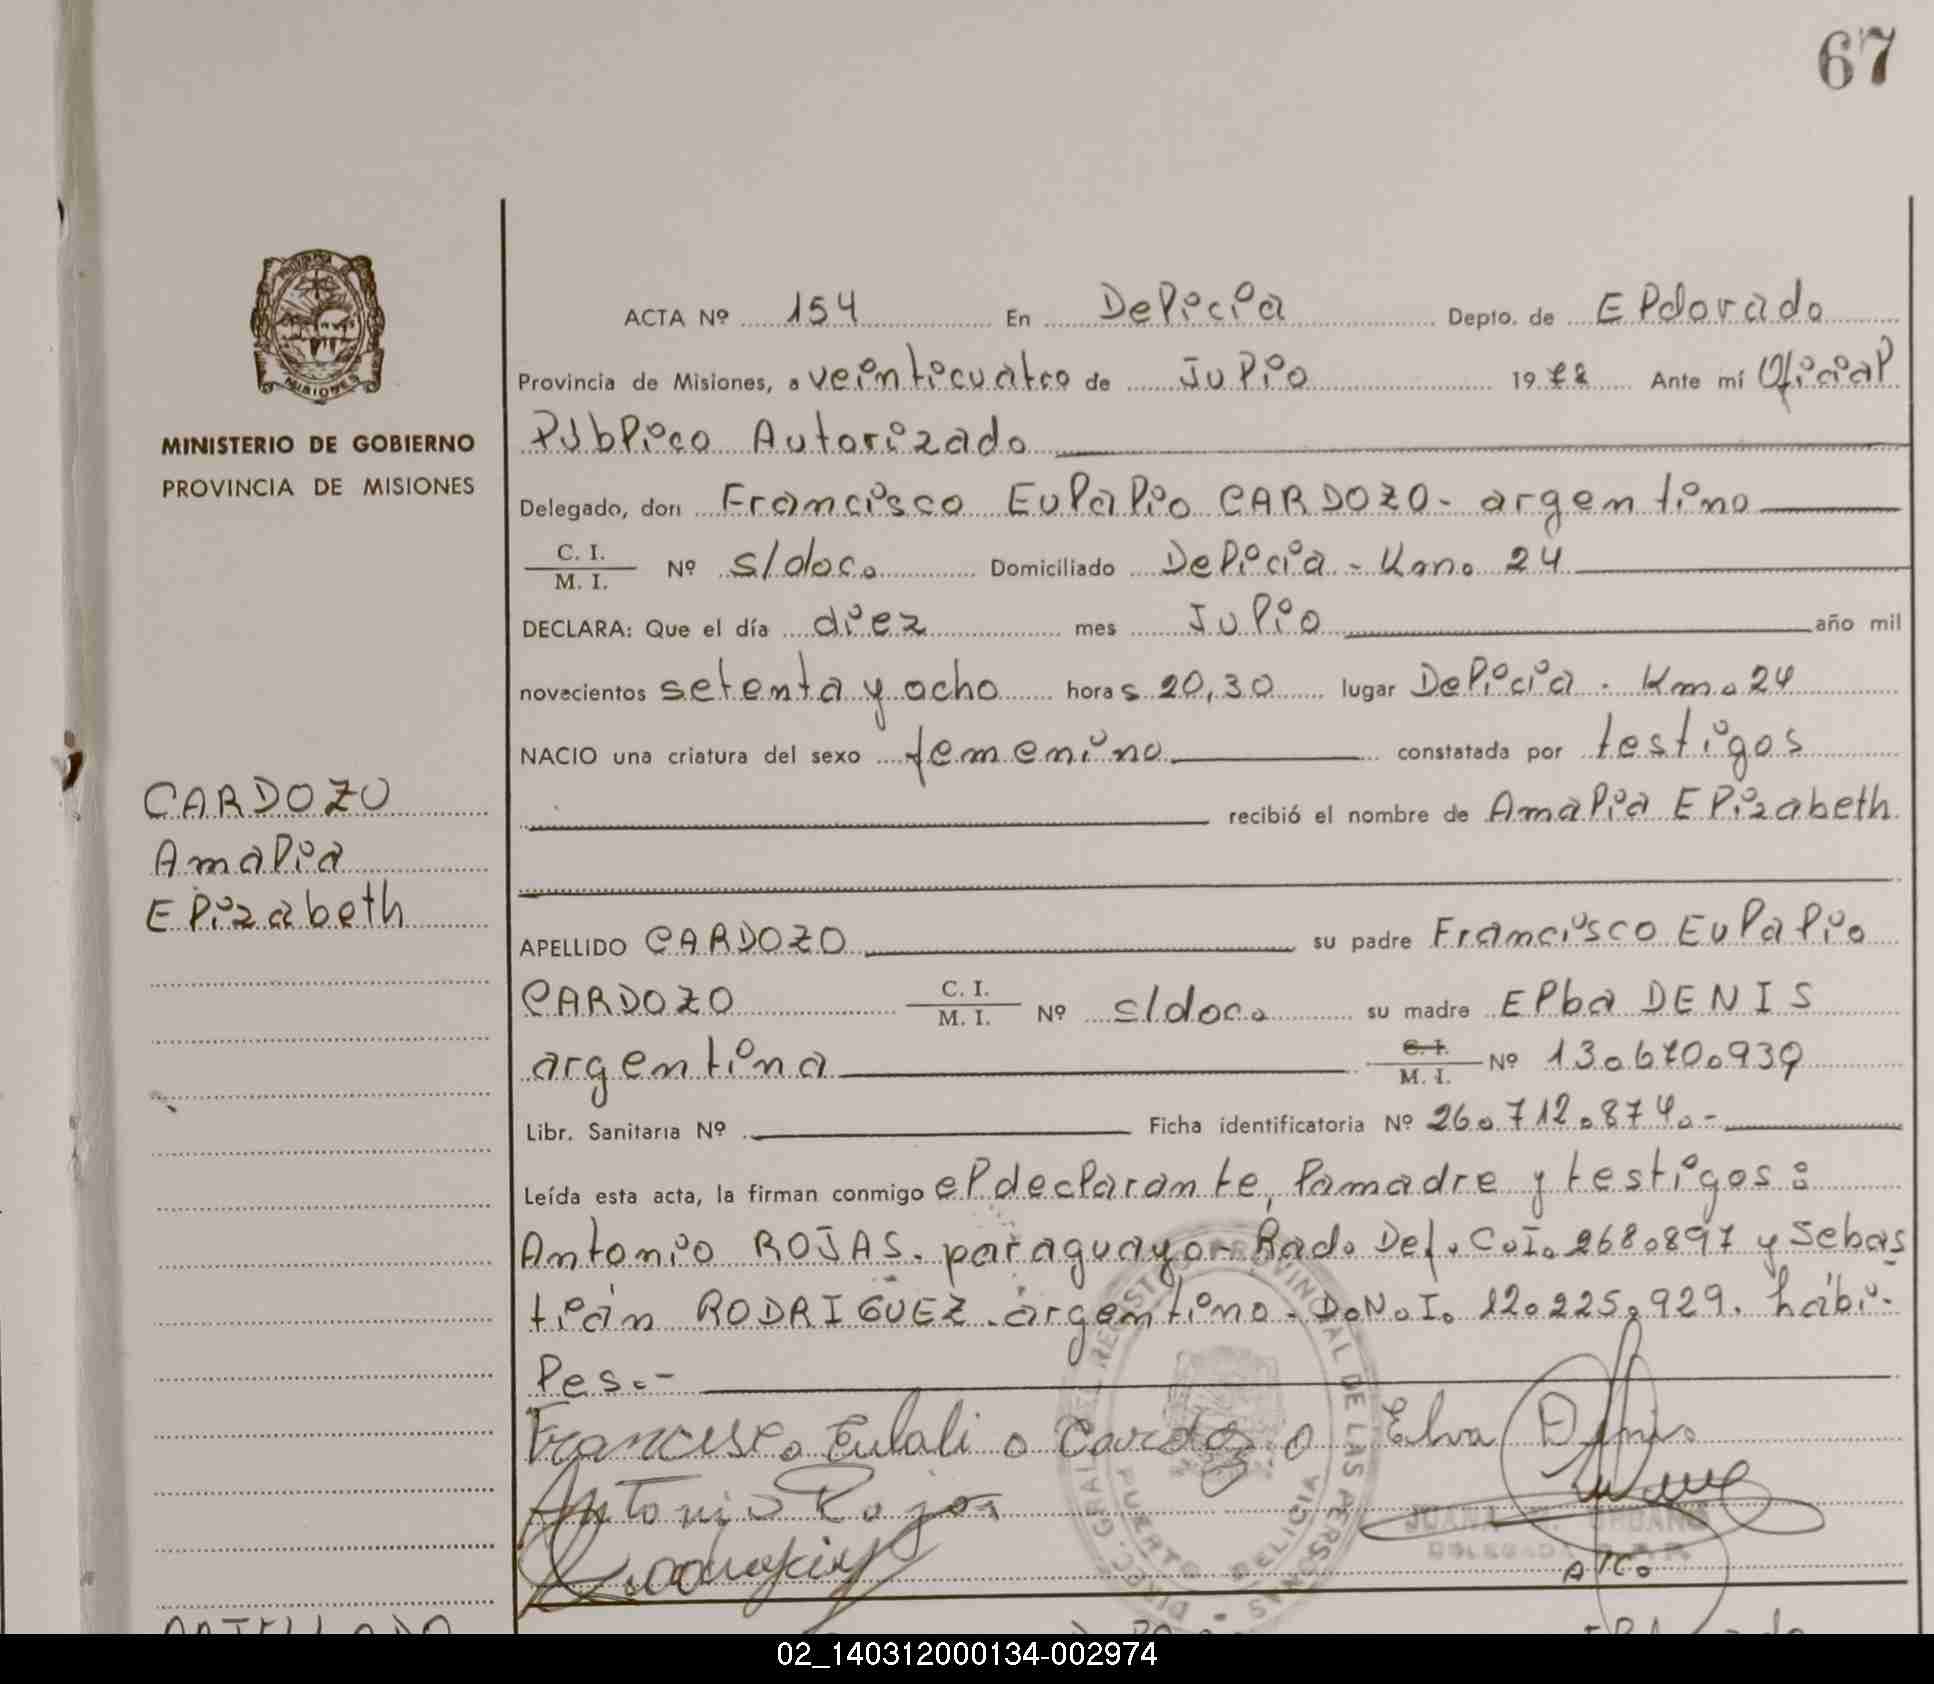 67
ACTA Nº 154 En Delicia Depto. de Eldorado
Provincia de Misiones, a veinticuatro de Julio 1978 Ante mí Oficial
Público Autorizado
MINISTERIO DE GOBIERNO
PROVINCIA DE MISIONES
Delegado, don Francisco Eulalio CARDOZO - argentino
C. I.
M. I. Nº s/doc. Domiciliado Delicia - Km. 24
DECLARA: Que el día diez mes Julio año mil
novecientos setenta y ocho horas 20,30 lugar Delicia - Km. 24
NACIO una criatura del sexo femenino constatada por testigos
recibió el nombre de Amalia Elizabeth
CARDOZO
Amalia
Elizabeth
APELLIDO CARDOZO su padre Francisco Eulalio
CARDOZO C. I.
M. I. Nº s/doc. su madre Elba DENIS
argentina C. I.
M. I. Nº 13.670.939
Libr. Sanitaria Nº Ficha identificatoria Nº 26.712.874.-
Leída esta acta, la firman conmigo el declarante, la madre y testigos:
Antonio ROJAS. paraguayo - Rad. Def. C.I. 268.897 y Sebas
tián RODRIGUEZ - argentino - D.N.I. 12.225.929. hábi-
les.-
Francisco Eulalio Cardozo Elva Denis
Antonio Rojas
DIREC. GRAL. DEL REGISTRO PROVINCIAL DE LAS PERSONAS
PUERTO DELICIA
JUANA URBANO
DELEGADA
02_140312000134-002974